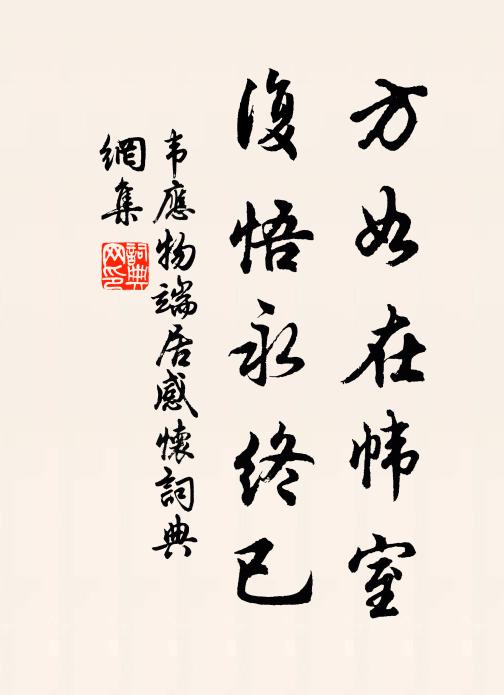 方如在幃室
復悟永終已
韋應物端居感懷詞典
網集
詞典
网印